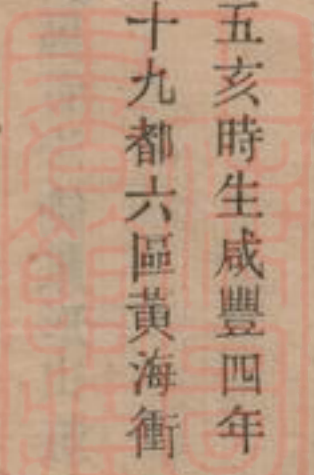 五亥時生咸豐四年
十九都六區黃海衝